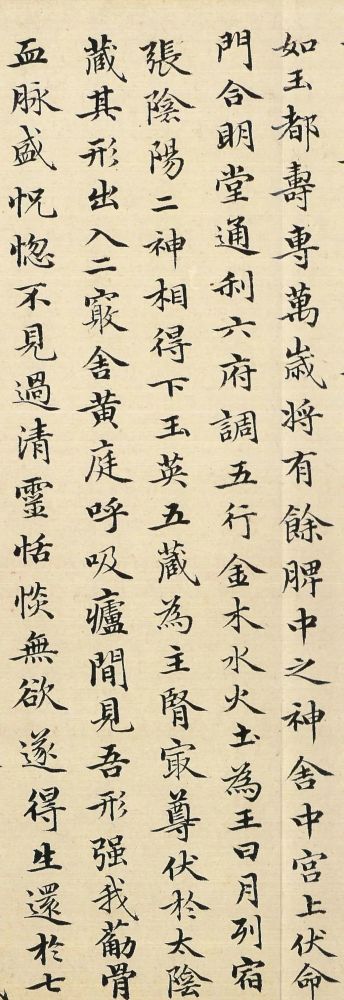 如玉都壽専萬歲将有餘脾中之神舍中宮上伏命
門合明堂通利六府調五行金木水火土為王日月列宿
張陰陽二神相得下玉英五藏為主腎冣尊伏於太陰
藏其形出入二竅舍黃庭呼吸廬間見吾形强我筋骨
血脉盛怳惚不見過清靈恬惔無欲遂得生還於七